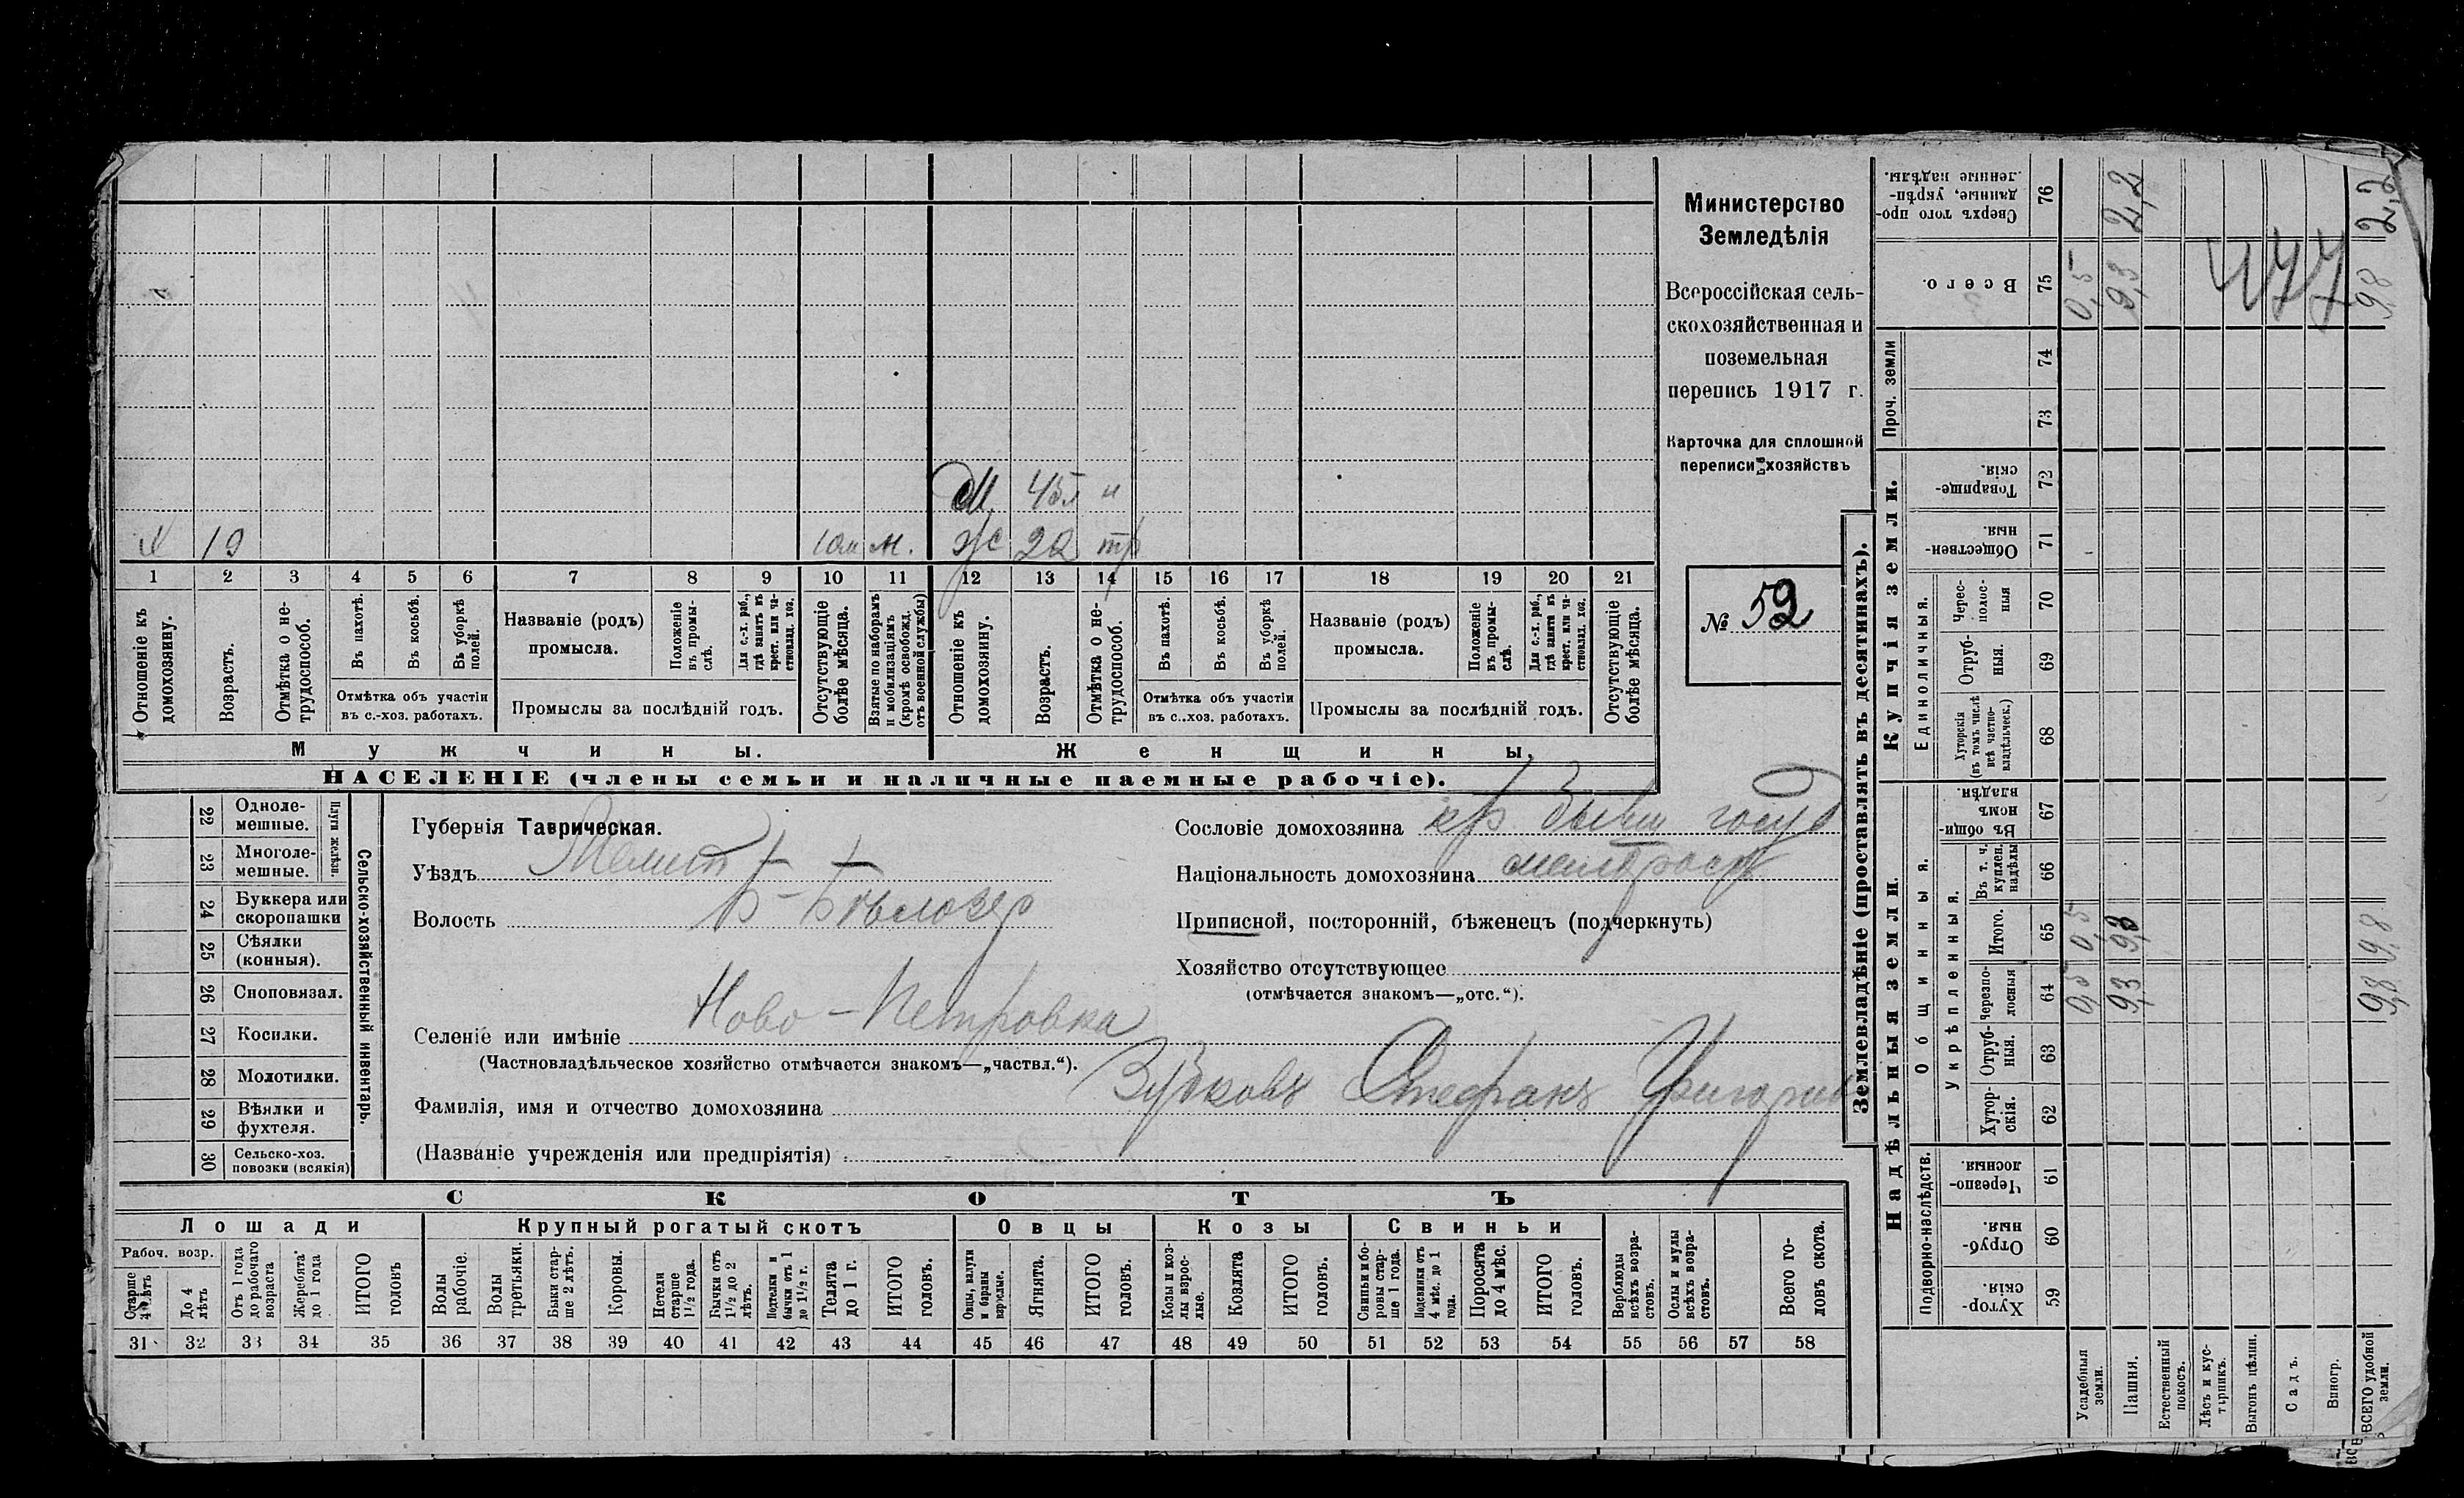 Министерство
Земледѣлія
Всероссійская сель-
скохозяйственная и
поземельная
перепись 1917 г.
Карточка для сплошной
переписи хозяйствъ
№ 52
М 45л н
Х 19 10м м. Ж 22 тр
1 2 3 4 5 6 7 8 9 10 11 12 13 14 15 16 17 18 19 20 21
Отношеніе къ домохозяину.
Возрастъ.
Отмѣтка о не-трудоспособ.
Въ пахотѣ.
Въ косьбѣ.
Въ уборкѣ полей.
Отмѣтка объ участіи
въ с.-хоз. работахъ.
Названіе (родъ)
промысла.
Положеніе въ промы-слѣ.
Для с.-х. раб., гдѣ занятъ въ крест. или ча-стновлад. хоз.
Промыслы за послѣдній годъ.
Отсутствующіе болѣе мѣсяца.
Взятые по наборамъ и мобилизаціямъ (кромѣ освобожд. отъ военной службы)
Отношеніе къ домохозяину.
Возрастъ.
Отмѣтка о не-трудоспособ.
Въ пахотѣ.
Въ косьбѣ.
Въ уборкѣ полей.
Отмѣтка объ участіи
въ с.-хоз. работахъ.
Названіе (родъ)
промысла.
Положеніе въ промы-слѣ.
Для с.-х. раб., гдѣ занята въ крест. или ча-стновлад. хоз.
Промыслы за послѣдній годъ.
Отсутствующіе болѣе мѣсяца.
Мужчины.
Женщины.
НАСЕЛЕНІЕ (члены семьи и наличные наемные рабочіе).
22 Одноле-мешные.
23 Многоле-мешные.
Плуги желѣзн.
24 Буккера или скоропашки
25 Сѣялки (конныя).
26 Сноповязал.
27 Косилки.
28 Молотилки.
29 Вѣялки и фухтеля.
30 Сельско-хоз. повозки (всякія)
Сельско-хозяйственный инвентарь.
Губернія Таврическая.
Уѣздъ Мелит
Волость Б-Бѣлозер
Селеніе или имѣніе Ново-Петровка
(Частновладѣльческое хозяйство отмѣчается знакомъ—„частвл.“).
Фамилія, имя и отчество домохозяина Зубковъ Стефанъ Григорьев
(Названіе учрежденія или предпріятія)
Сословіе домохозяина кр. бывш госуд
Національность домохозяина малоросс
Приписной, посторонній, бѣженецъ (подчеркнуть)
Хозяйство отсутствующее
(отмѣчается знакомъ—„отс.“).
СКОТЪ
Лошади
Крупный рогатый скотъ
Овцы
Козы
Свиньи
Рабоч. возр.
Старше 4 лѣтъ
До 4 лѣтъ
Отъ 1 года до рабочаго возраста
Жеребята до 1 года
ИТОГО головъ
Волы рабочіе.
Волы третьяки.
Быки стар-ше 2 лѣтъ.
Коровы.
Нетели старше 1½ года.
Бычки отъ 1½ до 2 лѣтъ.
Нетелки и бычки отъ 1 до 1½ г.
Телята до 1 г.
ИТОГО головъ.
Овцы, валухи и бараны взрослые.
Ягнята.
ИТОГО головъ.
Козы и коз-лы взрос-лые.
Козлята
ИТОГО головъ.
Свиньи и бо-ровы стар-ше 1 года.
Подсвинки отъ 4 мѣс. до 1 года.
Поросята до 4 мѣс.
ИТОГО головъ.
Верблюды всѣхъ возра-стовъ.
Ослы и мулы всѣхъ возра-стовъ.
Всего го-ловъ скота.
31 32 33 34 35 36 37 38 39 40 41 42 43 44 45 46 47 48 49 50 51 52 53 54 55 56 57 58
Землевладѣніе (проставлять въ десятинахъ).
Надѣльныя земли.
Купчія земли.
Проч. земли
Подворно-наслѣдств.
Общинныя.
Укрѣпленныя.
Единоличныя.
Хутор-скія. 59
Отруб-ныя. 60
Черезпо-лосныя. 61
Хутор-скія. 62
Отруб-ныя. 63
Черезпо-лосныя 64
Итого. 65
Въ т. ч. куплен. надѣлы 66
Въ общи-номъ владѣн. 67
Хуторскія (въ томъ числѣ всѣ частно-владѣльческ.) 68
Отруб-ныя. 69
Черес-полос-ныя 70
Обществен-ныя 71
Товарище-скія. 72
73
74
Всего. 75
Сверхъ того про-данные, укрѣп-ленные надѣлы. 76
Усадебныя земли. 0,5 0,5 0,5
Пашня. 9,3 9,3 9,3 2,2
Естественный покосъ.
Лѣсъ и кус-тарникъ.
Выгонъ цѣлин.
Садъ.
Виногр.
ВСЕГО удобной земли. 9,8 9,8 9,8 2,2
477